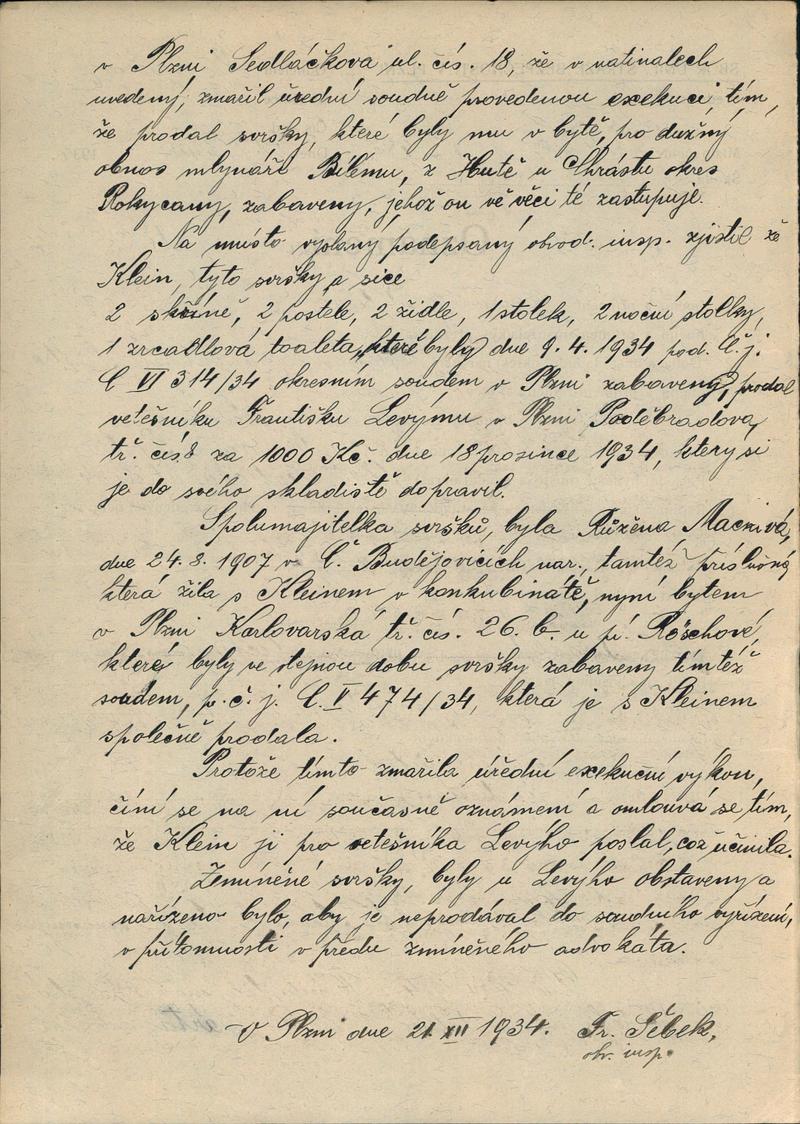 v Plzni Sedláčkova ul. čís. 18, že v natinalech
uvedený, zmařil úřední soudně provedenou exekuci, tím,
že prodal svršky, které byly mu v bytě, pro dužný
obnos mlynáři Bílému, z Hutě u Chrástu okres
Rokycany, zabaveny, jehož on vě věci té zastupuje.
Na místo vyslaný podepsaný obvod. insp. zjistil že
Klein, tyto svršky a sice
2 skříně, 2 postele, 2 židle, 1 stolek, 2 noční stolky,
1 zrcadlová toaleta, (které byly) dne 9. 4. 1934 pod. Č. j.
C VI 314/34 okresním soudem v Plzni zabaveny), prodal
vetešníku Františku Levýmu v Plzni Poděbradova,
tř. čís. 8 za 1000 Kč. dne 18 prosince 1934, který si
je do svého skladistě dopravil.
Spolumajitelka svršků, byla Růžena
dne 24. 8. 1907 v Č. Budějovicích nar., tamtéž příslušná
která žila s Kleinem v konkubinátě, nyní bytem
v Plzni Karlovarská tř. čís. 26. b. u pí. Rešchové,
které byly ve stejnou dobu svršky zabaveny tímtéž
soudem, p. č. j. C. V 474/34, která je s Kleinem
společně prodala.
Protože tímto zmařila úřední exekuční výkon,
činí se na ní současně oznámení a omlouvá se tím,
že Klein ji pro vetešníka Levýho poslal, což učinila.
Zmíněné svršky, byly u Levýho obstaveny a
nařízeno bylo, aby je neprodával do soudního vyřízení,
v přítomnosti v předu zmíněného advokáta.
V Plzni dne 21 XII 1934. Fr. Šebek,
obv. insp.